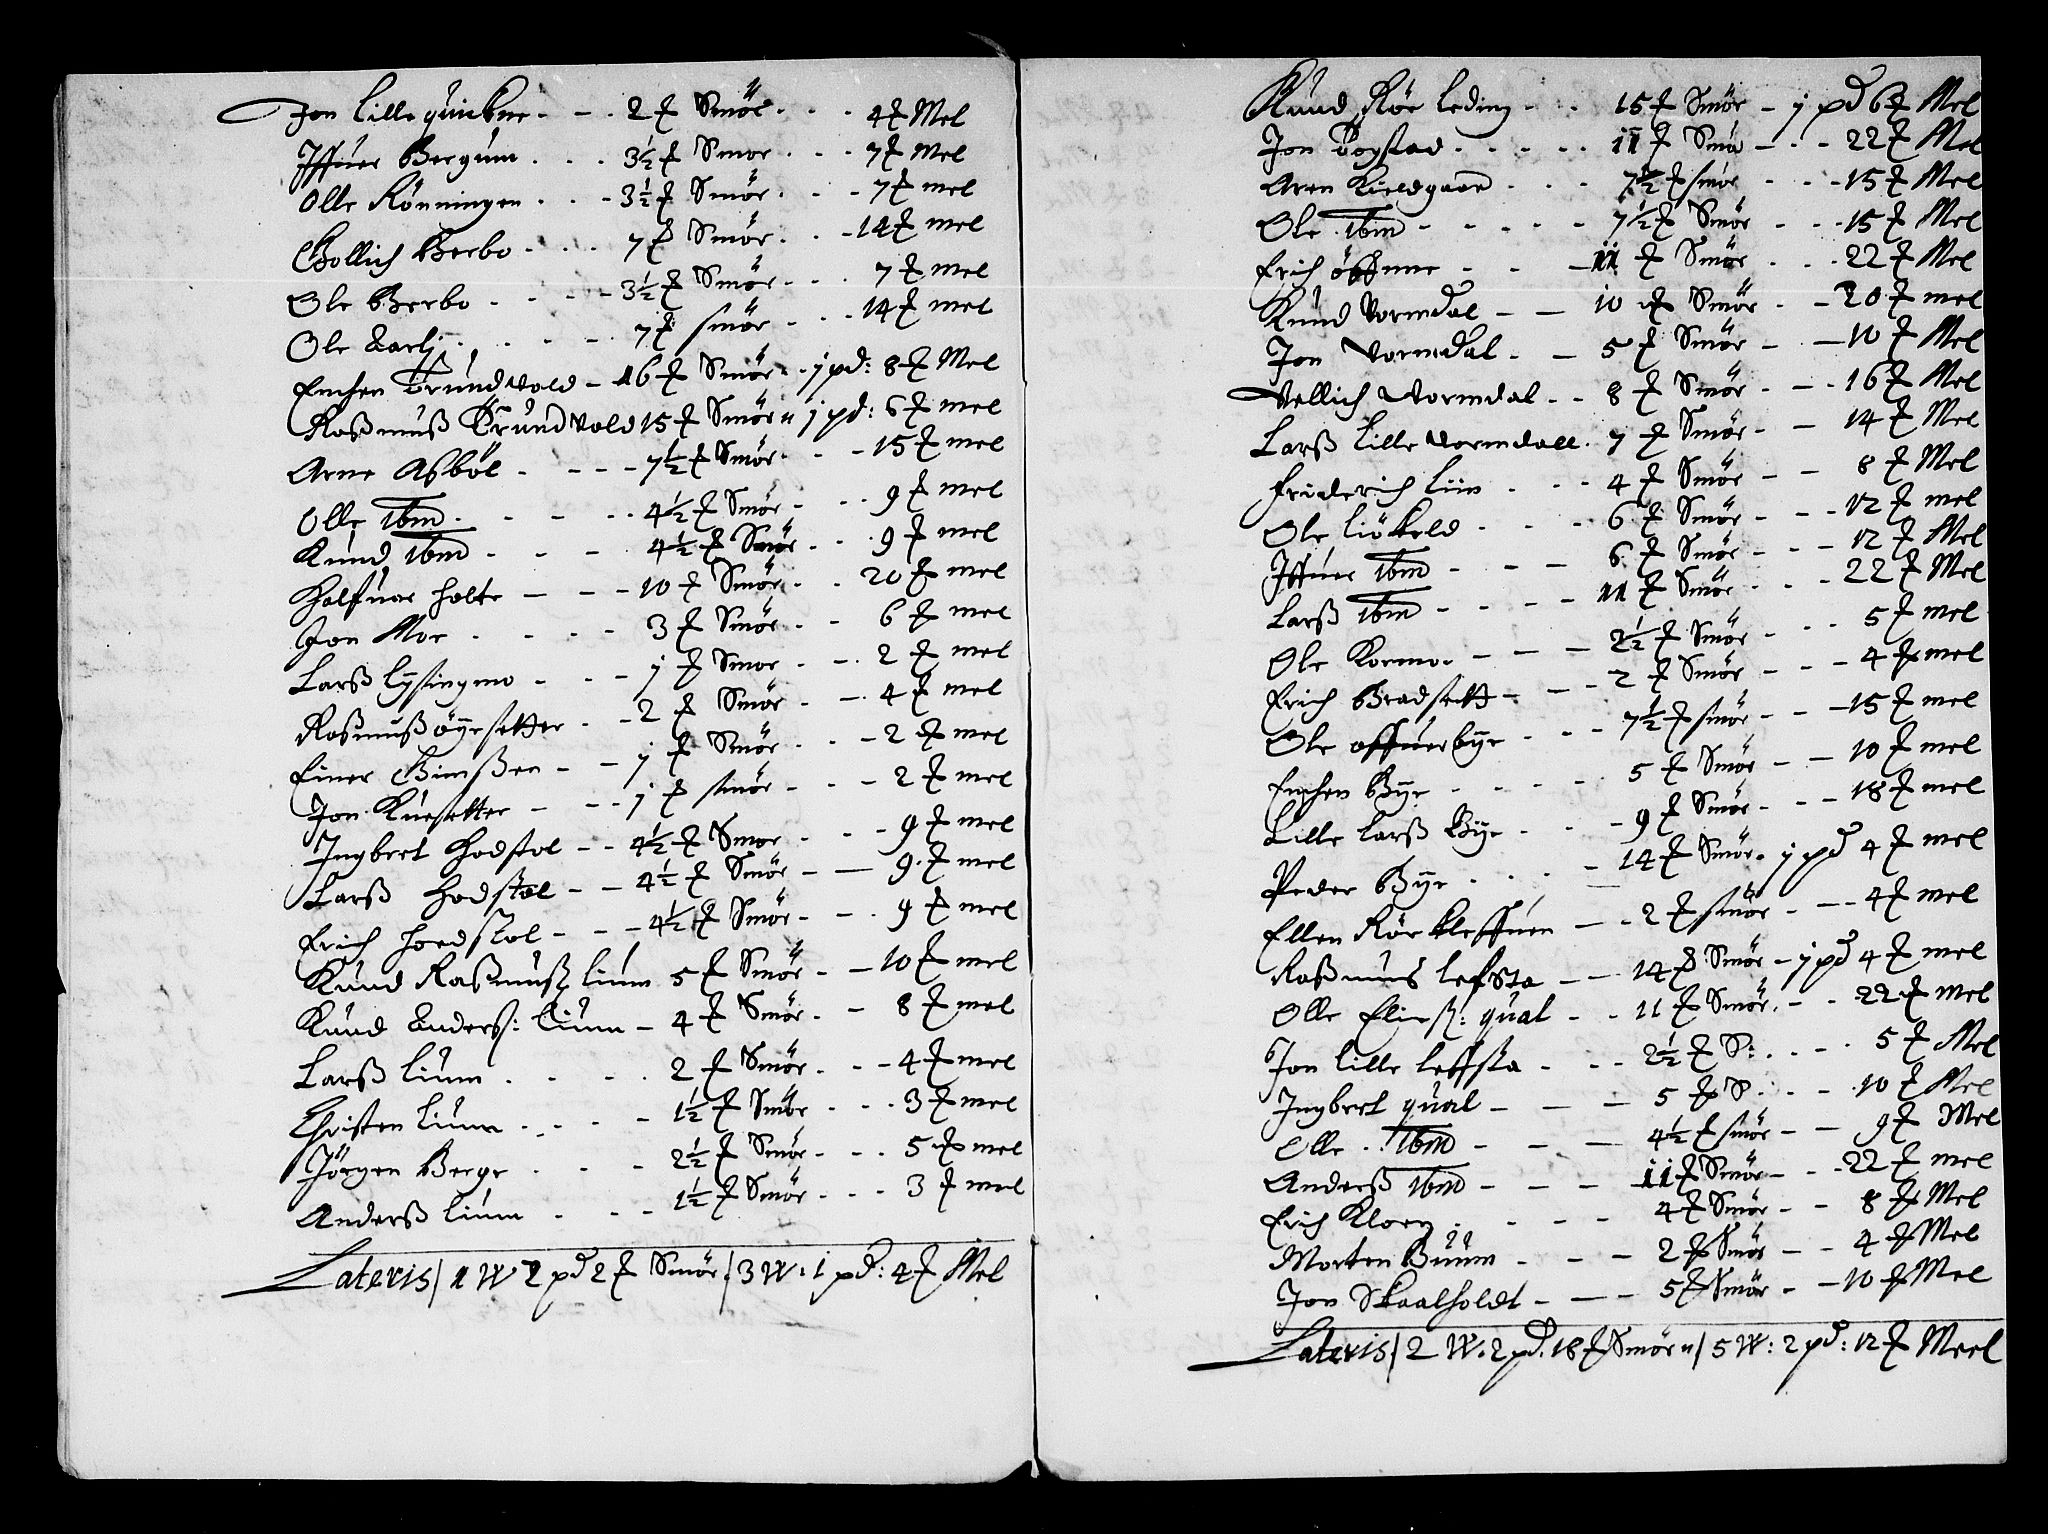 Jon Lille quickne - - - 2 ℔ Smör - - - 4 ℔ Mel
Iffuer Bergum - - - 3½ ℔ Smor - - - 7 ℔ Mel
Olle Rönningen - - - 3½ ℔ Smör - - - 7 ℔ mel
Bollich Berbo - - - 7 ℔ Smör - - - 14 ℔ mel
Ole Berbo - - - - 3½ ℔ Smör - - - 7 ℔ mel
Ole - - - - 7 ℔ smör - - - 14 ℔ mel
Enchen Grundvold - 16 ℔ Smör - j pd: 8 ℔ Mel
Rassmuss Grundvold 15 ℔ Smör j pd: 6 ℔ mel
Arne Assböl - - - - 7½ ℔ Smör - - - 15 ℔ mel
Olle Ibm - - - - 4½ ℔ Smör - - - 9 ℔ mel
Knud Ibm - - - 4½ ℔ Smör - - - 9 ℔ mel
Halfuar Holte - - - 10 ℔ Smör - - 20 ℔ mel
Jon Moe - - - - 3 ℔ Smör - - 6 ℔ mel
Larss Lysingmo - - - j ℔ Smor - - - 2 ℔ mel
Rassmuss öyesetter - - 2 ℔ Smör - - - 4 ℔ mel
Einer Gimssen - - j ℔ Smör - - - 2 ℔ mel
Jon Kuesetter - - - j ℔ smör - - - 2 ℔ mel
Ingbret Hodstol - - 4½ ℔ Smor - - - 9 ℔ mel
Larss Hodstol - - 4½ ℔ Smör - - 9 ℔ mel
Erich Hoedstol - - - 4½ ℔ Smör - - - 9 ℔ mel
Knud Rassmuss: Lium 5 ℔ Smör - - 10 ℔ mel
Knud Anderss: Lium - 4 ℔ Smör - - 8 ℔ mel
Larss Lium - - - - 2 ℔ Smör - - - 4 ℔ mel
Christen Lium - - - - 1½ ℔ Smör - - - 3 ℔ mel
Jörgen Berge - - - 2½ ℔ Smör - - - 5 ℔ mel
Anderss Lium - - - 1½ ℔ Smör - - - 3 ℔ mel
Lateris / 1 W 2 pd 2 ℔ Smör / 3 W: 1 pd: 4 ℔ Mel
Knud Rör Leding - - 15 ℔ Smör - j pd 6 ℔ Mel
Jon Bogstad - - - - - 11 ℔ Smör - - - 22 ℔ Mel
Aren Kieldgaar - - - 7½ ℔ smör - - - 15 ℔ Mel
Ole Ibm - - - - - 7½ ℔ Smör - - - 15 ℔ Mel
Erich - - - 11 ℔ Smör - - - 22 ℔ Mel
Knud Vormdal - - 10 ℔ Smör - - 20 ℔ mel
Jon Vormdal - - 5 ℔ Smör - - 10 ℔ Mel
Vellich Vormdal - - 8 ℔ Smör - - - 16 ℔ Mel
Larss Lille Vormdall - 7 ℔ Smör - - 14 ℔ Mel
Friderich Liin - - - 4 ℔ Smör - - 8 ℔ Mel
Ole Liökeld - - - - 6 ℔ Smör - - - 12 ℔ mel
Iffuer Ibm - - - - 6 ℔ Smör - - - 12 ℔ Mel
Larss Ibm - - - - 11 ℔ Smör - - - 22 ℔ Mel
Ole Kormo - - - - 2½ ℔ Smör - - - 5 ℔ mel
Erich Bradsett - - - 2 ℔ Smör - - - 4 ℔ mel
Ole offuerbye - - - 7½ ℔ smör - - - 15 ℔ mel
Enchen Bye - - - - 5 ℔ Smör - - 10 ℔ mel
Lille Larss Bye - - - - 9 ℔ Smör - - - 18 ℔ mel
Peder Bye - - - - 14 ℔ Smör - j pd 4 ℔ mel
Ellen Rör kleffuen - - 2 ℔ smör - - - 4 ℔ mel
Rassmus Lefsta - - 14 ℔ Smör - j pd 4 ℔ mel
Olle Elinss: qual - - 11 ℔ Smör - - 22 ℔ mel
Jon Lille Leffsta - - - 2½ ℔ S: - - - - 5 ℔ Mel
Ingbret qual - - - 5 ℔ S - - - 10 ℔ Mel
Olle Ibm - - - 4½ ℔ smör - - 9 ℔ Mel
Anderss Ibm - - - - 11 ℔ Smör - - - 22 ℔ mel
Erich Kloen - - - - 4 ℔ Smör - - 8 ℔ Mel
Morten Buum - - - - 2 ℔ Smör - - 4 ℔ Mel
Jon Skaalholdt - - - - 5 ℔ Smör - - 10 ℔ Mel
Lateris / 2 W: 2 pd: 18 ℔ Smör / 5 W: 2 pd: 12 ℔ Meel